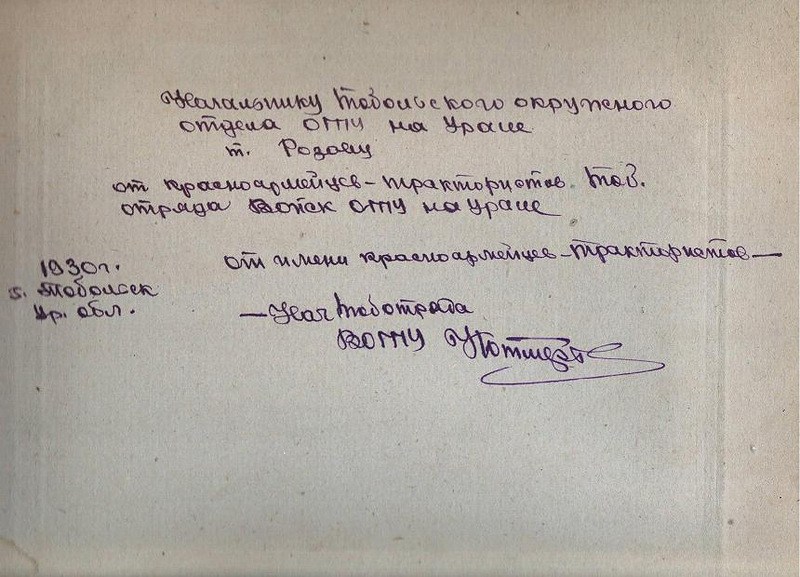 Начальнику Тобольского окружного
отдела ОГПУ на Урале
т. Розову
от красноармейцев-трактористов Тоб.
отряда Войск ОГПУ на Урале
1930г.
г. Тобольск
Ур. обл.
от имени красноармейцев-трактористов —
— Нач Тоботряда
ВОГПУ